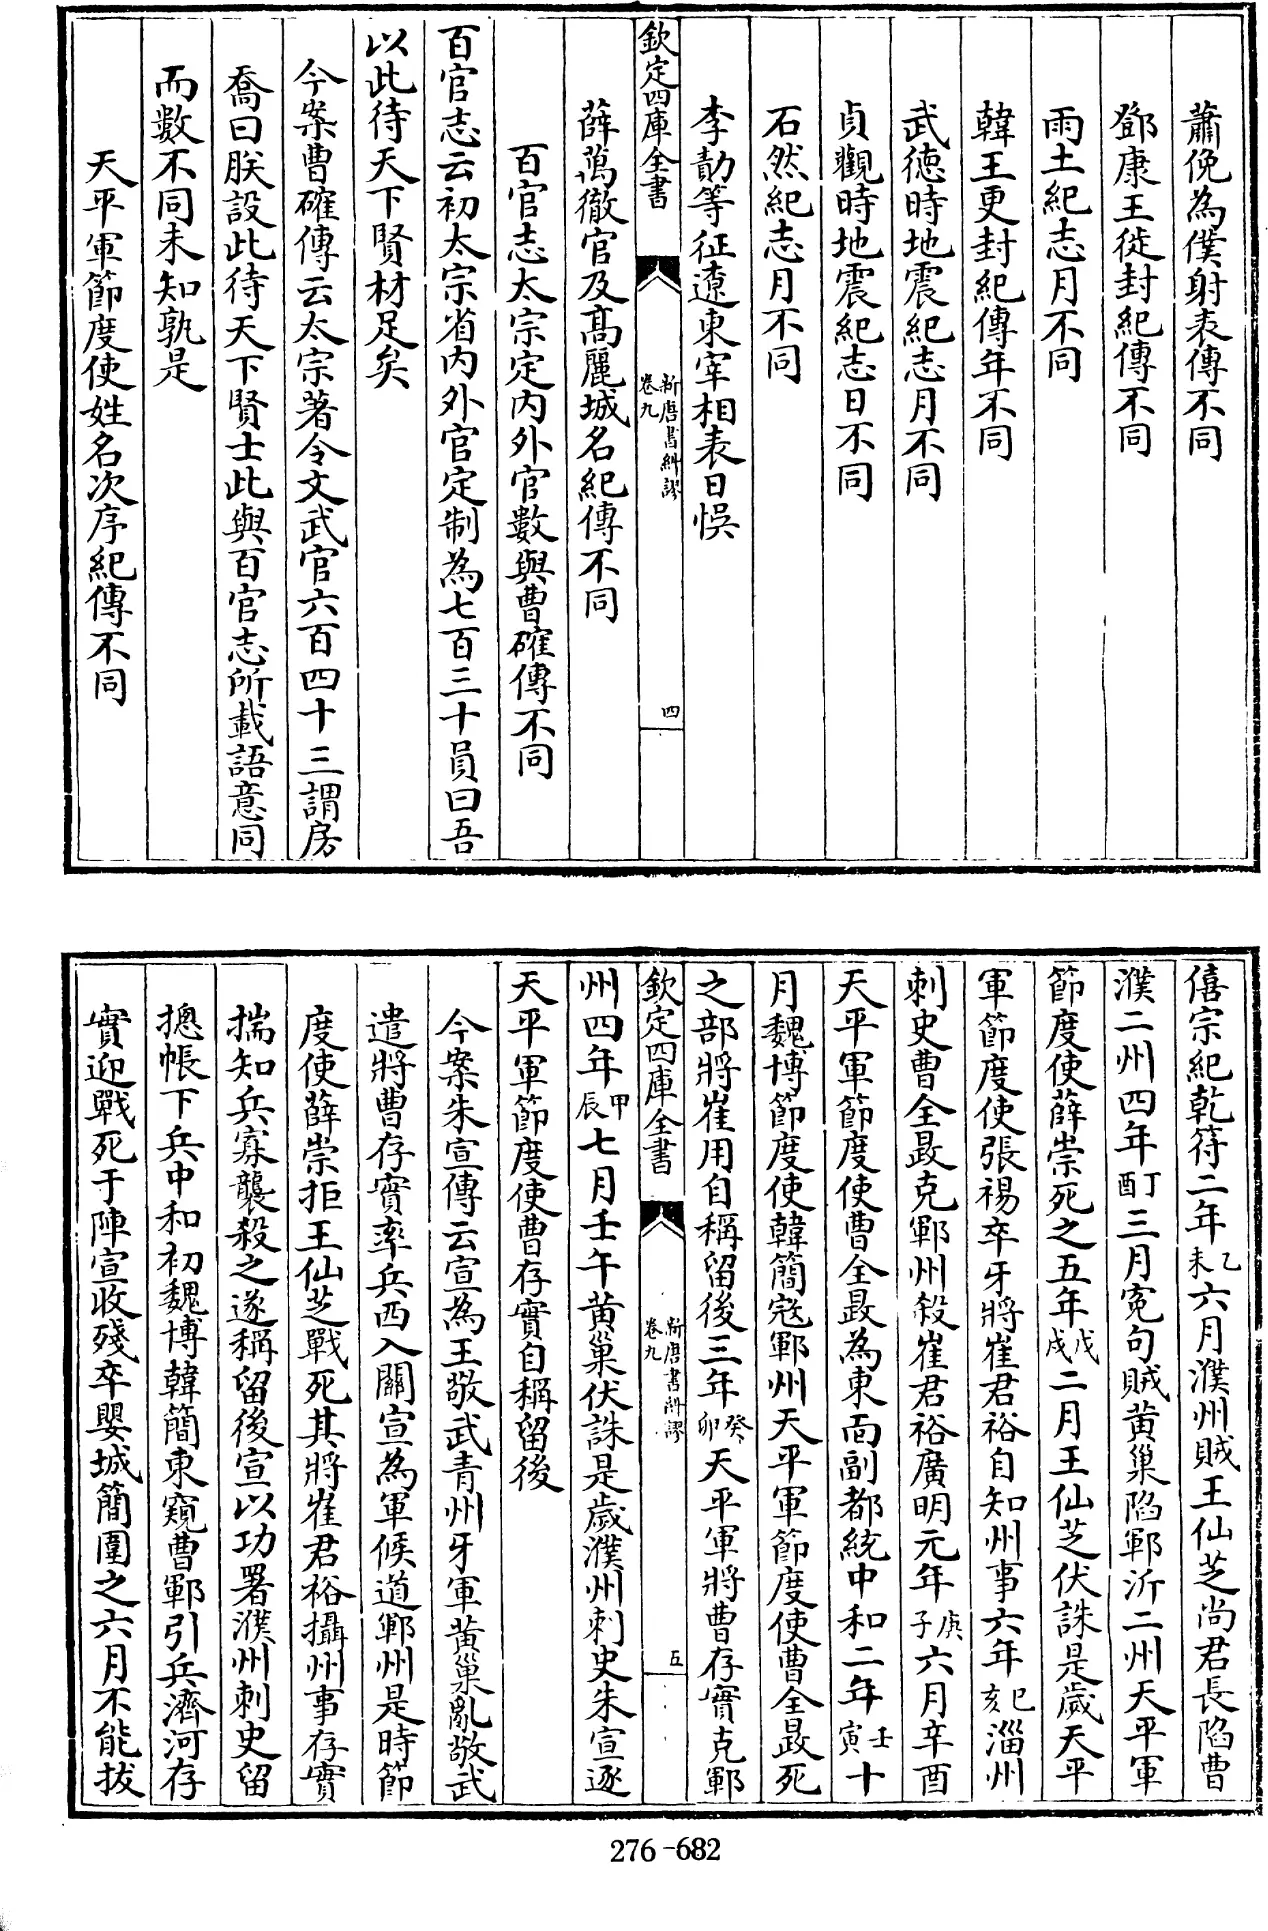 蕭俛為僕射表傳不同
鄧康王徙封紀傳不同
雨土紀志月不同
韓王更封紀傳年不同
武德時地震紀志月不同
貞觀時地震紀志日不同
石然紀志月不同
李勣等征遼東宰相表日悮
欽定四庫全書
新唐書糾謬
卷九
四
薛萬徹官及髙麗城名紀傳不同
百官志太宗定内外官數與曹確傳不同
百官志云初太宗省内外官定制為七百三十員曰吾
以此待天下賢材足矣
今案曹確傳云太宗著令文武官六百四十三謂房
喬曰朕設此待天下賢士此與百官志所載語意同
而數不同未知孰是
天平軍節度使姓名次序紀傳不同
僖宗紀乾符二年乙未六月濮州賊王仙芝尚君長陷曹
濮二州四年丁酉三月寃句賊黄巢陷鄆沂二州天平軍
節度使薛崇死之五年戊戌二月王仙芝伏誅是歲天平
軍節度使張裼卒牙將崔君裕自知州事六年己亥淄州
刺史曹全晸克鄆州殺崔君裕廣明元年庚子六月辛酉
天平軍節度使曹全晸為東面副都統中和二年壬寅十
月魏博節度使韓簡宼鄆州天平軍節度使曹全晸死
之部將崔用自稱留後三年癸卯天平軍將曹存實克鄆
欽定四庫全書
新唐書糾謬
卷九
五
州四年甲辰七月壬午黄巢伏誅是歲濮州刺史朱宣逐
天平軍節度使曹存實自稱留後
今案朱宣傳云宣為王敬武青州牙軍黄巢亂敬武
遣將曹存實率兵西入關宣為軍候道鄆州是時節
度使薛崇拒王仙芝戰死其將崔君裕攝州事存實
揣知兵寡襲殺之遂稱留後宣以功署濮州刺史留
摠帳下兵中和初魏博韓簡東窺曹鄆引兵濟河存
實迎戰死于陣宣收殘卒嬰城簡圍之六月不能拔
276-682